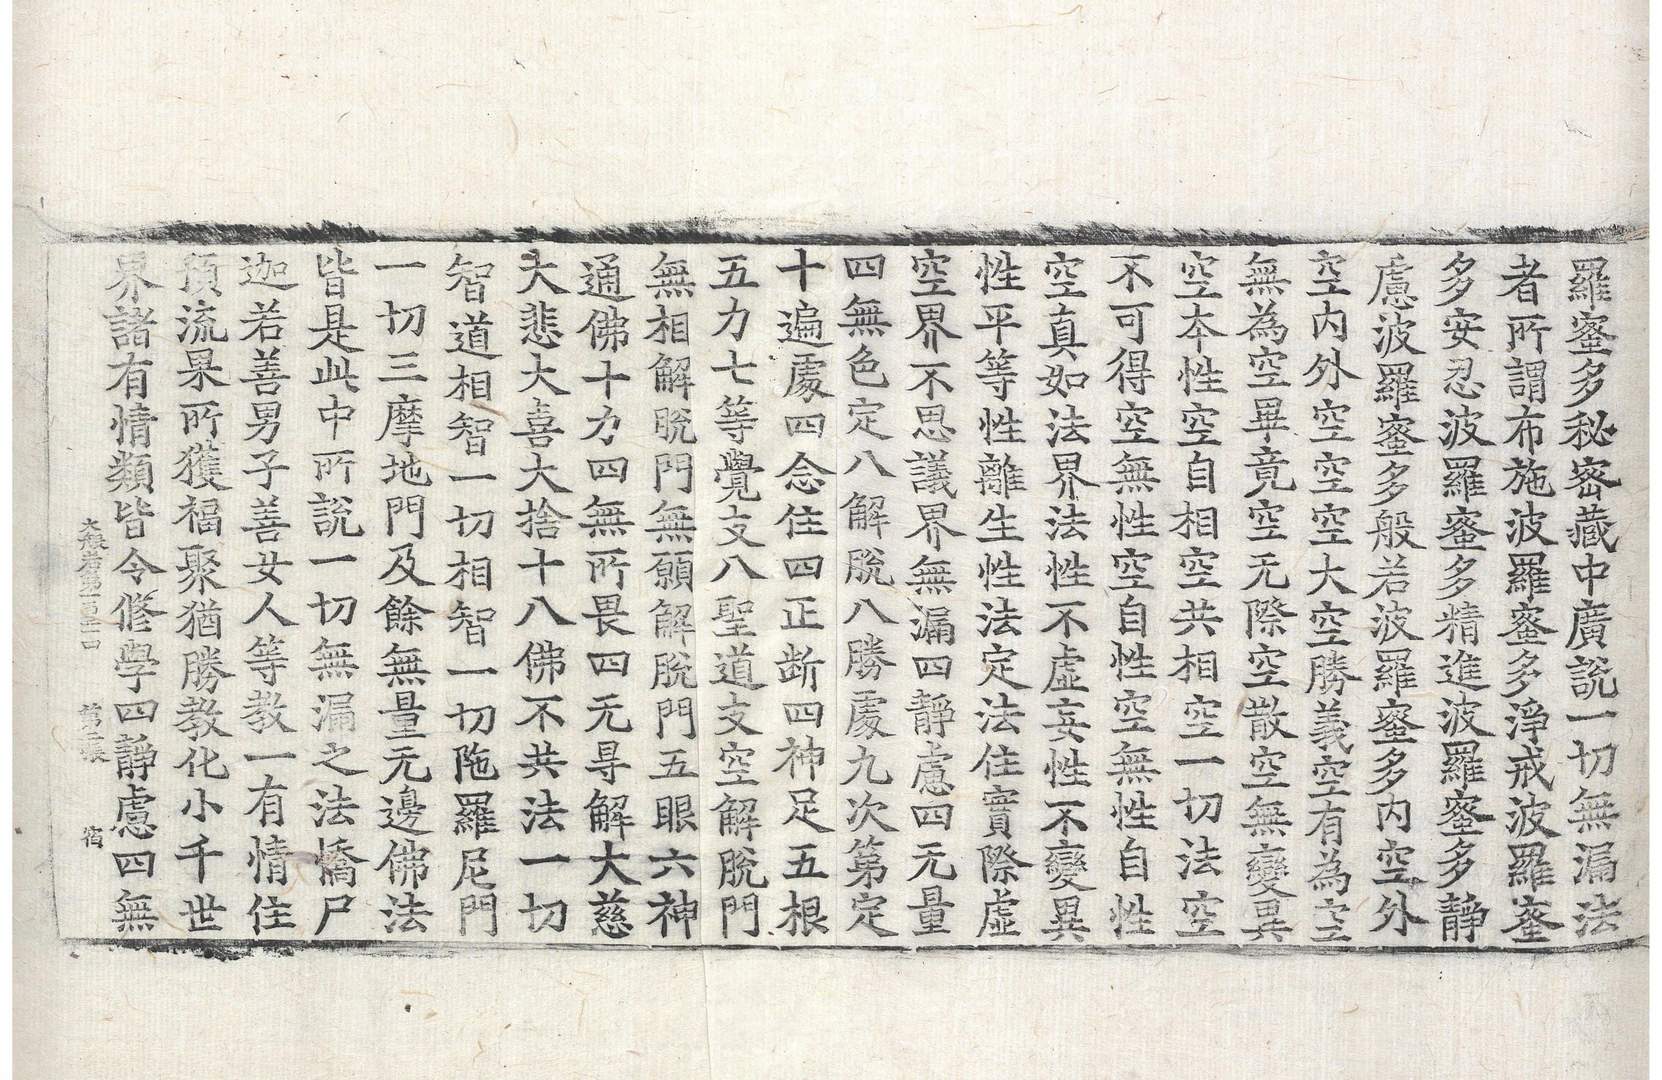 羅蜜多秘密藏中廣說一切無漏法
者所謂布施波羅蜜多淨戒波羅蜜
多安忍波羅蜜多精進波羅蜜多靜
慮波羅蜜多般若波羅蜜多內空外
空內外空空空大空勝義空有為空
無為空畢竟空无際空散空無變異
空本性空自相空共相空一切法空
不可得空無性空自性空無性自性
空真如法界法性不虛妄性不變異
性平等性離生性法定法住實際虛
空界不思議界無漏四靜慮四无量
四無色定八解脫八勝處九次第定
十遍處四念住四正斷四神足五根
五力七等覺支八聖道支空解脫門
無相解脫門無願解脫門五眼六神
通佛十力四無所畏四无㝵解大慈
大悲大喜大捨十八佛不共法一切
智道相智一切相智一切陁羅尼門
一切三摩地門及餘無量无邊佛法
皆是此中所說一切無漏之法憍尸
迦若善男子善女人等教一有情住
預流果所獲福聚猶勝教化小千世
界諸有情類皆令修學四靜慮四無
大般若第一百三十四 第三張 宿